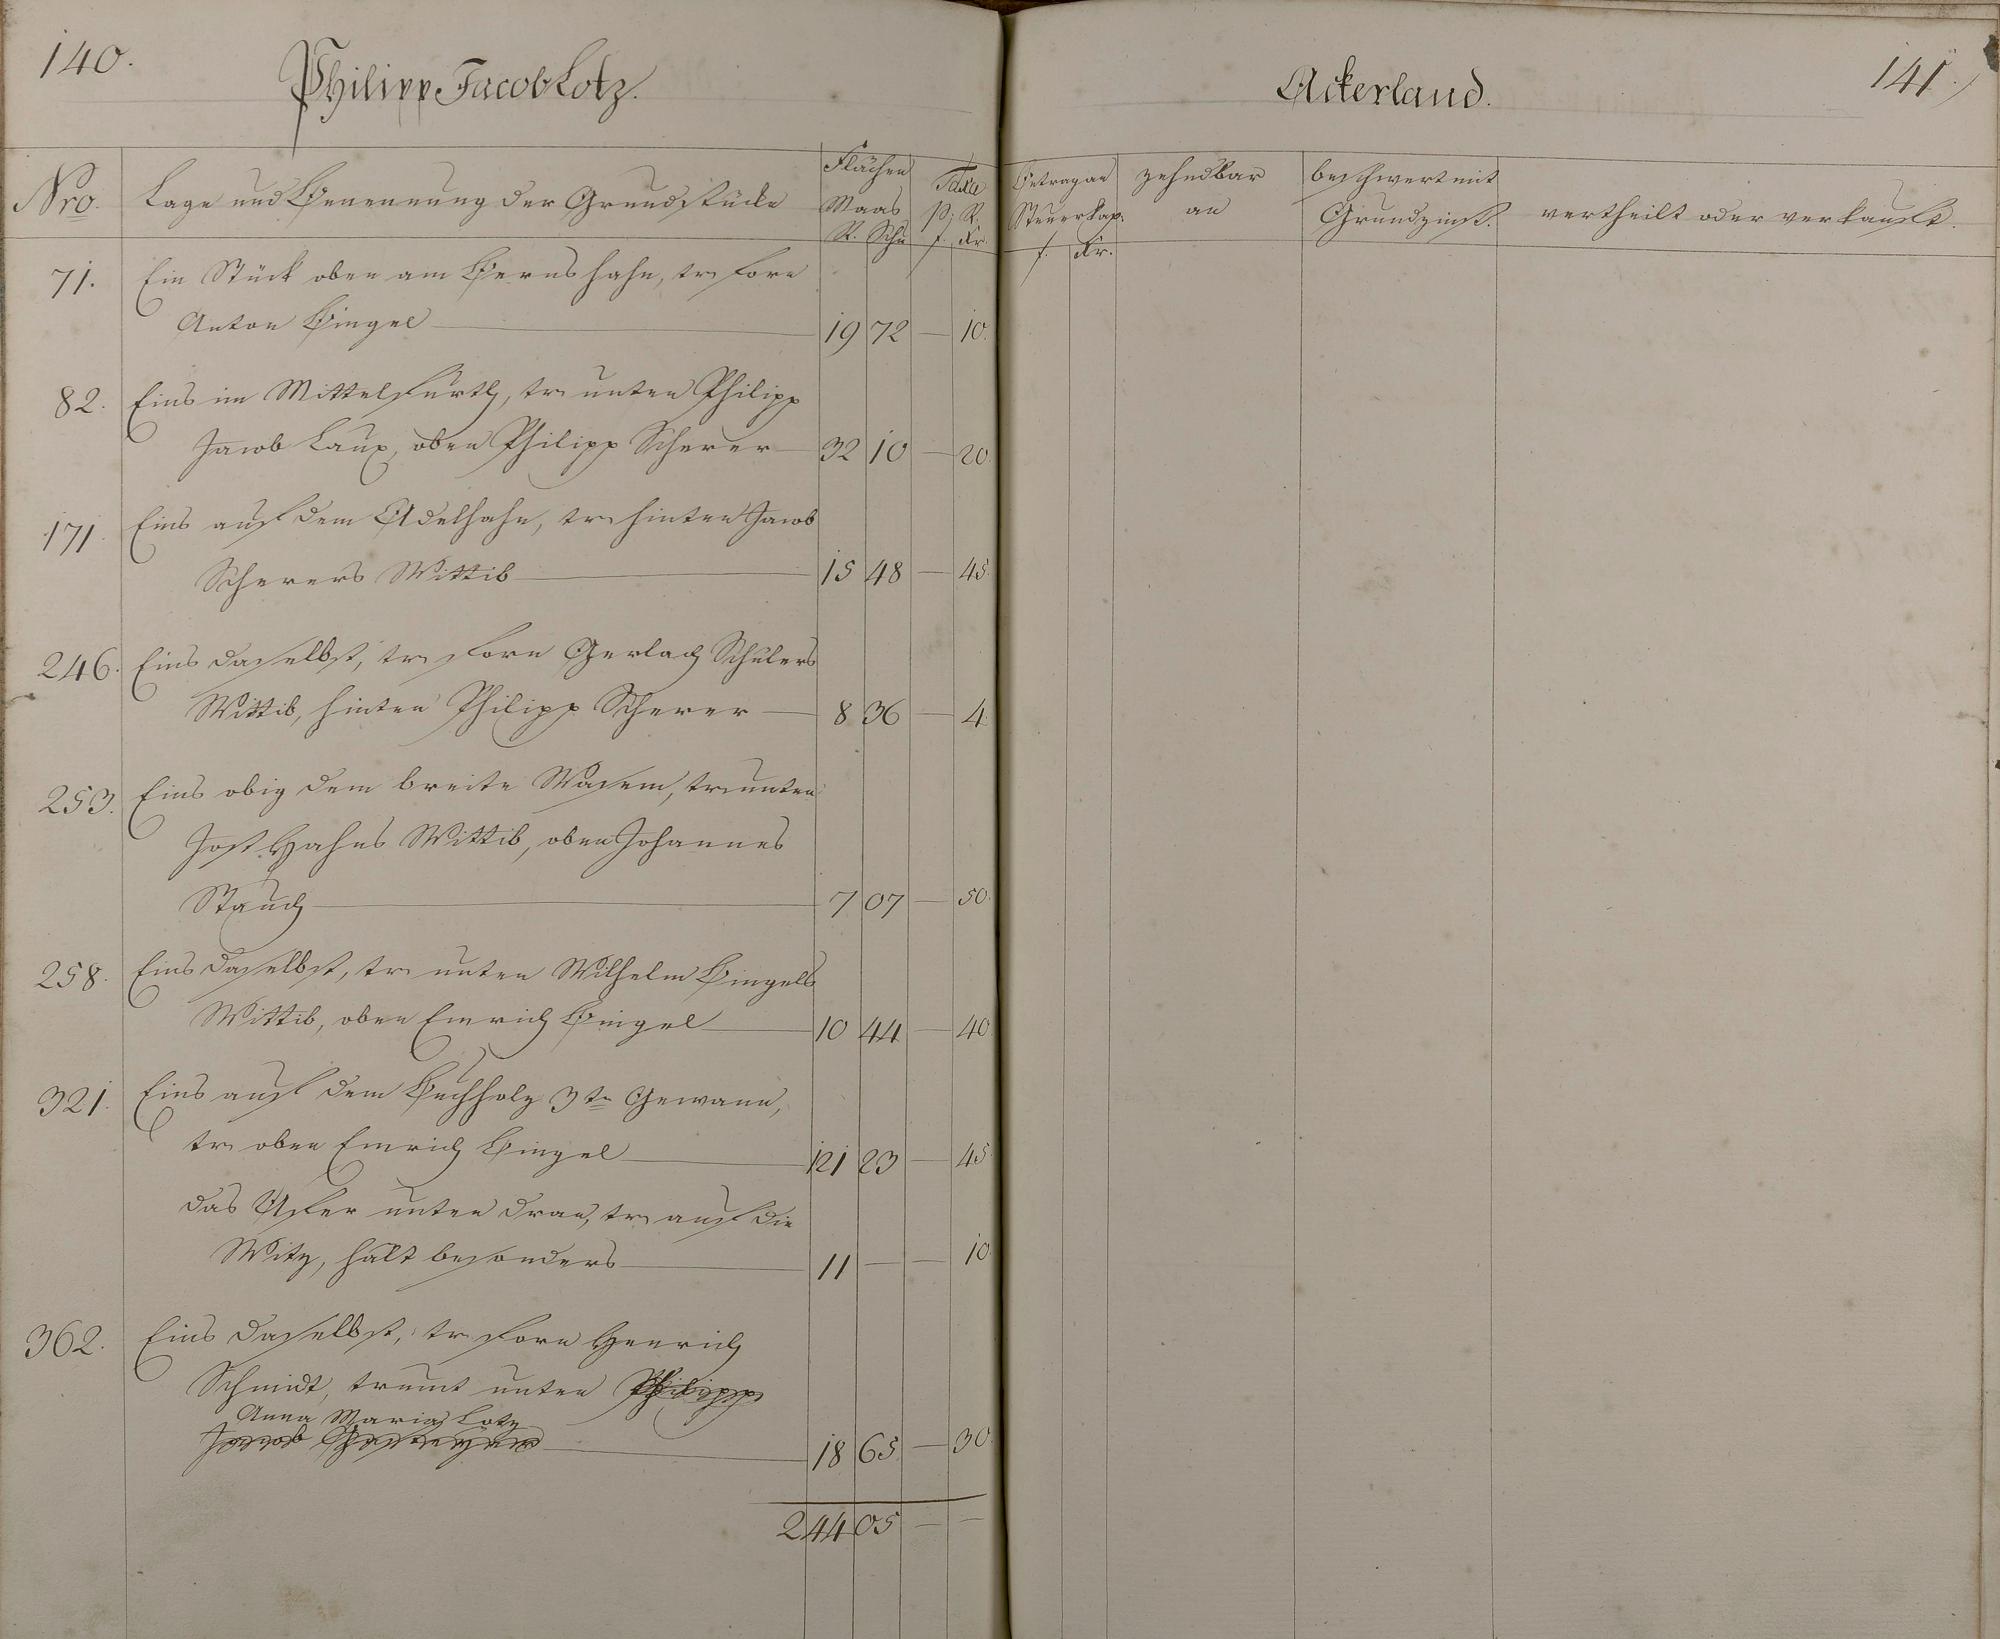 140.
Philipp Jacob Lotz.
Nro.
Lage und Benennung der Grundstücke
Flächen
Maas
R. Schu
Taxe
p. R.
f. Kr.
71. Ein Stück oben am Bernshahn, tr. forn
Anton Bingel 19 72 — 10.
82. Eins im Mittelfürth, tr. unten Philipp
Jacob Laux, oben Philipp Scherer 32 10 — 20.
171. Eins auf dem Adelhahn, tr. hinten Jacob
Scherers Wittib 15 48 — 45.
246. Eins daselbst, tr. forn Gerlach Schülers
Wittib, hinten Philipp Scherer 8 36 — 4.
253. Eins obig dem breite Wasem, tr. unten
Jost Hahns Wittib, oben Johannes
Stauch 7 07 — 50.
258. Eins daselbst, tr. unten Wilhelm Bingels
Wittib, oben Emrich Bingel 10 44 — 40
321. Eins auf dem Buchholz 3te Gewann,
tr. oben Emrich Bingel 121 23 — 45.
das Ufer unten dran, tr. auf die
hält besonders 11 — — 10.
362. Eins daselbst, tr. forn Henrich
Schmidt, trumt unten Philipp
Anna Maria Lotz
Jacob 18 65 — 30.
244 05 — —
Ackerland.
141.
Betrag an
Steuerkap.
f. Kr.
zehndbar
an
beschwert mit
Grundzinß.
vertheilt oder verkauft.